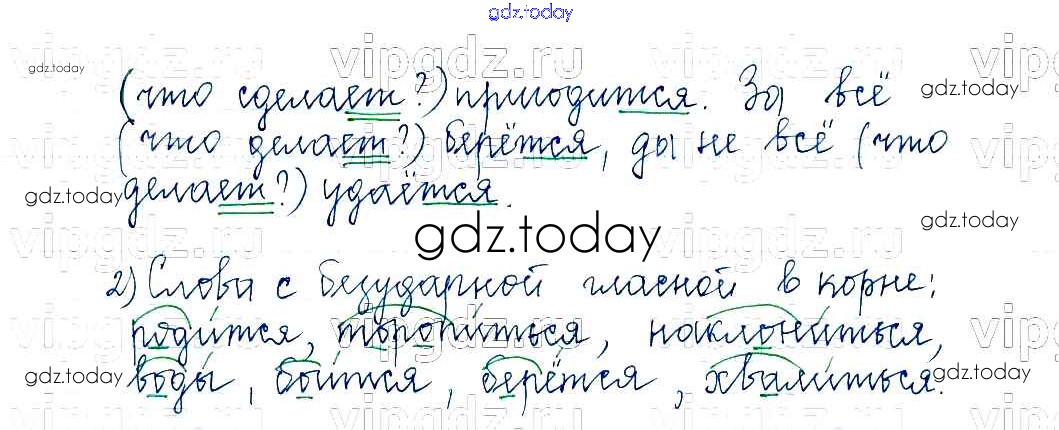 gdz.today
vipgdz.ru vipgdz.ru
gdz.today
(что сделает?) пригодится. За всё
gdz.today
(что делает?) берётся, да не всё (что
делает?) удаётся.
gdz.today
gdz.today
gdz.today
2) Слова с безударной гласной в корне:
родится, торопиться, наклониться,
gdz.today
воды, боится, берётся, хвалиться.
gdz.today